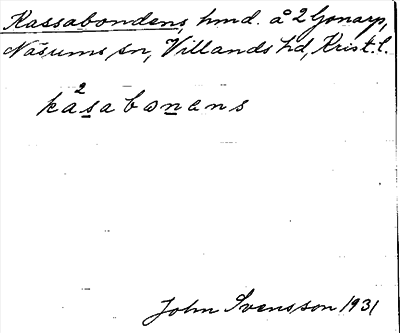 Kassabondens, hmd. å 2 Gonarp,
Näsums sn, Villands hd, Krist. l.
ka²sabonans
John Svensson 1931